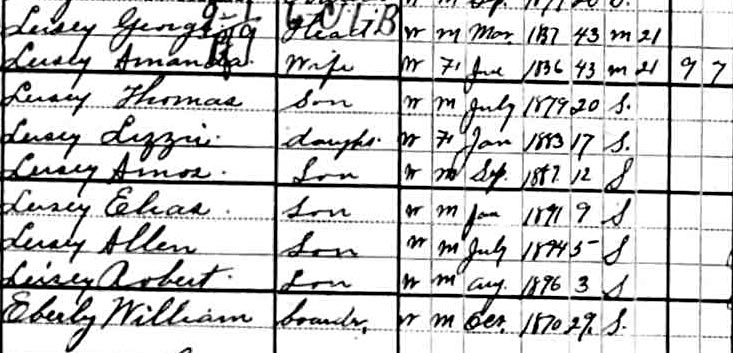 Leisey George Head W M Mar. 1857 43 M 21
Leisey Amanda Wife W F Jue 1856 43 M 21 9 7
Leisey Thomas Son W M July 1879 20 S.
Leisey Lizzie daught. W F Jan 1883 17 S.
Leisey Amos Son W M Sep. 1887 12 S
Leisey Elias Son W M Jan 1891 9 S
Leisey Allen Son W M July 1894 5 S
Leisey Robert Son W M Aug. 1896 3 S
Eberly William boarder, W M Oct. 1870 29 S.